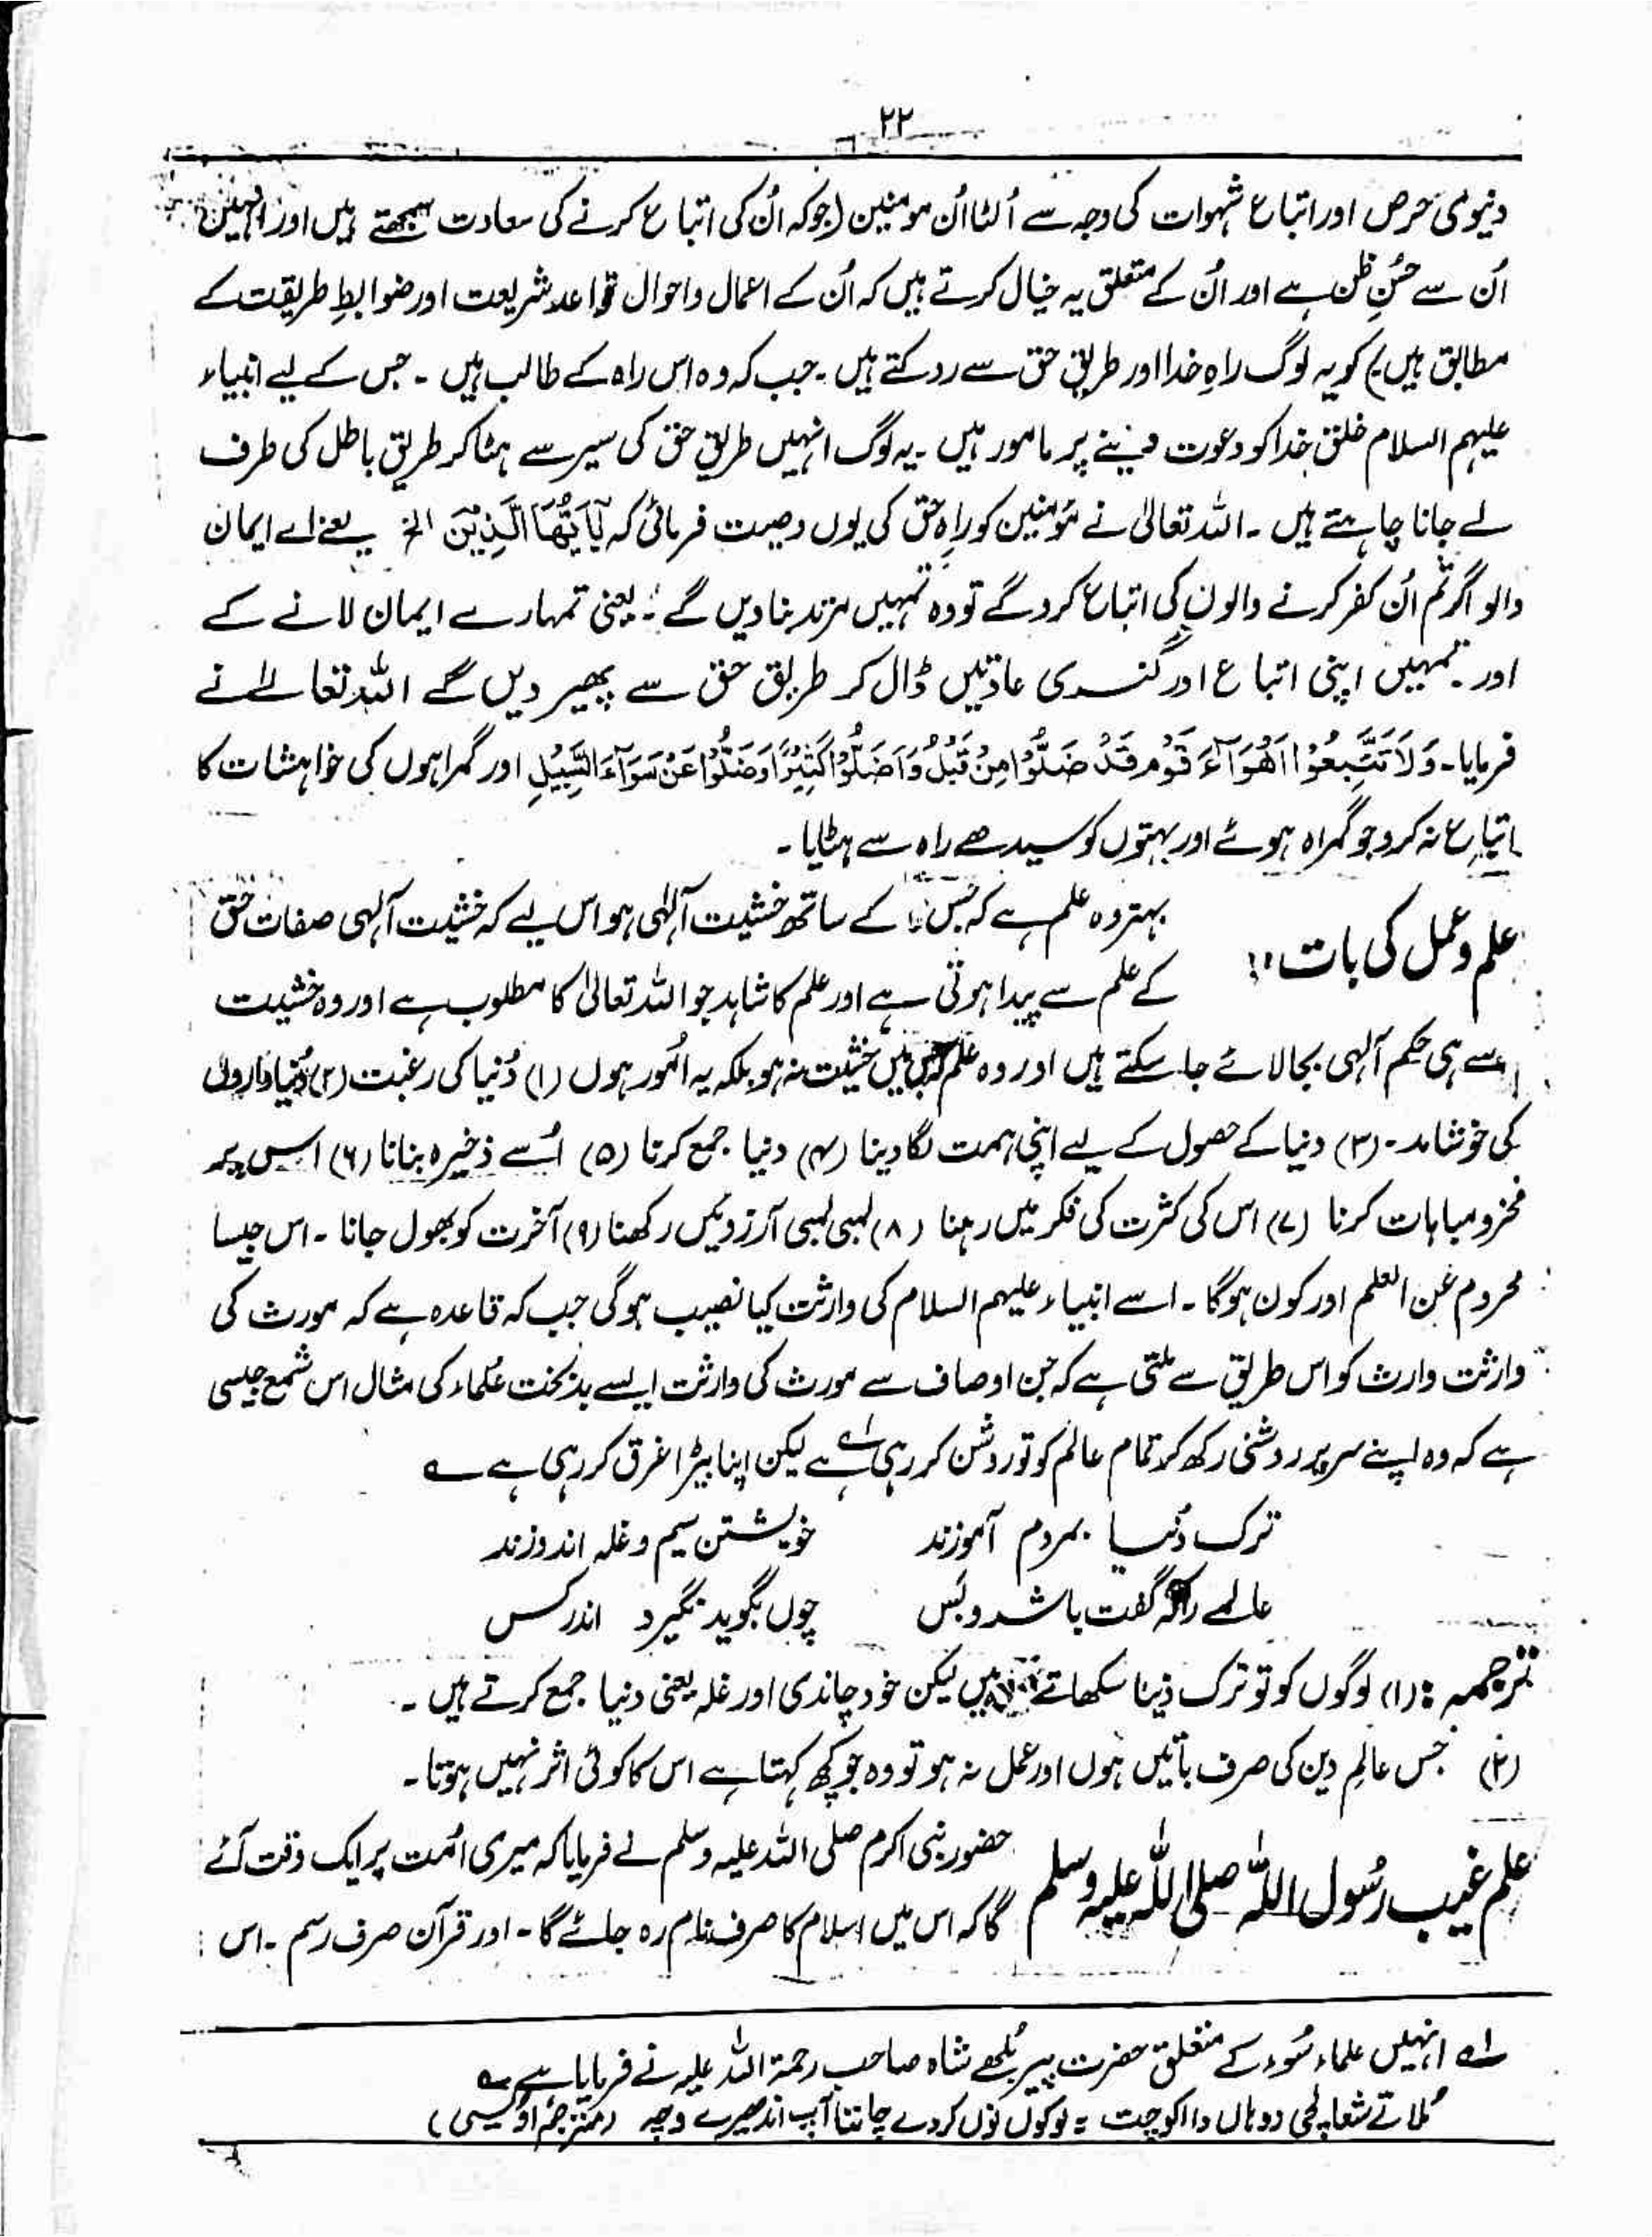 ۲۲
دنیوی حرص اور اتباع شہوات کی وجہ سے اُلٹا اُن مومنین (جو کہ اُن کی اتباع کرنے کی سعادت سمجھتے ہیں اور انہیں
اُن سے حُسنِ ظن ہے اور اُن کے متعلق یہ خیال کرتے ہیں کہ اُن کے اعمال و احوال قواعد شریعت اور ضوابطِ طریقت کے
مطابق ہیں) کو یہ لوگ راہِ خدا اور طریق حق سے روکتے ہیں ۔ جب کہ وہ اس راہ کے طالب ہیں ۔ جس کے لیے انبیاء
علیہم السلام خلق خدا کو دعوت دینے پر مامور ہیں ۔ یہ لوگ انہیں طریق حق کی سیر سے ہٹا کر طریق باطل کی طرف
لے جانا چاہتے ہیں ۔ اللہ تعالیٰ نے مؤمنین کو راہِ حق کی یوں وصیت فرمائی کہ یٰٓاَیُّھَا الَّذِیْنَ الخ یعنے اے ایمان
والو اگر تم اُن کفر کرنے والوں کی اتباع کرو گے تو وہ تمہیں مرتد بنا دیں گے ؛ یعنی تمہارے ایمان لانے کے
اور تمہیں اپنی اتباع اور گندی عادتیں ڈال کر طریق حق سے پھیر دیں گے اللہ تعالےٰ نے
فرمایا ۔ وَلَا تَتَّبِعُوْا اَھْوَآءَ قَوْمٍ قَدْ ضَلُّوْا مِنْ قَبْلُ وَاَضَلُّوْا کَثِیْرًا وَّضَلُّوْا عَنْ سَوَآءِ السَّبِیْلِ اور گمراہوں کی خواہشات کا
اتباع نہ کرو جو گمراہ ہوئے اور بہتوں کو سیدھے راہ سے ہٹایا ۔
علم و عمل کی بات !! بہتر وہ علم ہے کہ جس کے ساتھ خشیت آلٰہی ہو اس لیے کہ خشیت آلہی صفات حق
کے علم سے پیدا ہوتی ہے اور علم کا شاہد جو اللہ تعالیٰ کا مطلوب ہے اور وہ خشیت
سے ہی حکم آلہی بجا لائے جا سکتے ہیں اور وہ علم جس میں خشیت نہ ہو بلکہ یہ اُمور ہوں (۱) دُنیا کی رغبت (۲) دُنیاداروں
کی خوشامد ۔ (۳) دنیا کے حصول کے لیے اپنی ہمت لگا دینا (۴) دنیا جمع کرنا (۵) اُسے ذخیرہ بنانا (۶) اس پر
فخر و مباہات کرنا (۷) اس کی کثرت کی فکر میں رہنا (۸) لمبی لمبی آرزوئیں رکھنا (۹) آخرت کو بھول جانا ۔ اس جیسا
محروم عن العلم اور کون ہوگا ۔ اسے انبیاء علیہم السلام کی وارثت کیا نصیب ہوگی جب کہ قاعدہ ہے کہ مورث کی
وارثت وارث کو اس طریق سے ملتی ہے کہ جن اوصاف سے مورث کی وارثت ایسے بدبخت علماء کی مثال اس شمع جیسی
ہے کہ وہ اپنے سر پر روشنی رکھ کر تمام عالم کو تو روشن کر رہی ہے لہ لیکن اپنا بیڑا غرق کر رہی ہے ؎
ترک دُنیا بمردم آموزند خویشتن سیم و غلہ اندوزند
عالمے را کہ گفت باشد و بس چوں بگوید نگیرد اندر کس
ترجمہ : (۱) لوگوں کو تو ترک دُنیا سکھاتے ہیں لیکن خود چاندی اور غلہ یعنی دنیا جمع کرتے ہیں ۔
(۲) جس عالم دین کی صرف باتیں ہوں اور عمل نہ ہو تو وہ جو کچھ کہتا ہے اس کا کوئی اثر نہیں ہوتا ۔
علم غیب رسُول اللہ صلی اللہ علیہ وسلم حضور نبی اکرم صلی اللہ علیہ وسلم نے فرمایا کہ میری اُمت پر ایک وقت آئے
گا کہ اس میں اسلام کا صرف نام رہ جائے گا ۔ اور قرآن صرف رسم ۔ اس
لہ انہیں علماء سُوء کے متعلق حضرت پیر بُلھے شاہ صاحب رحمۃ اللہ علیہ نے فرمایا ہے ؎
مُلاتے شعالچی دوہاں دا اکو چت ؛ لوکوں نوں کردے چاننا آپ اندھیرے وچہ (مترجم اُویسی)